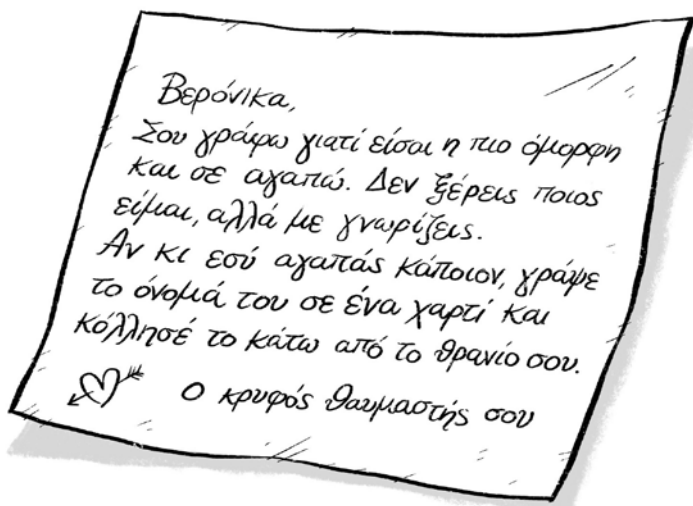 Βερόνικα,
Σου γράφω γιατί είσαι η πιο όμορφη
και σε αγαπώ. Δεν ξέρεις ποιος
είμαι, αλλά με γνωρίζεις.
Αν κι εσύ αγαπάς κάποιον, γράψε
το όνομά του σε ένα χαρτί και
κόλλησέ το κάτω από το θρανίο σου.
Ο κρυφός θαυμαστής σου